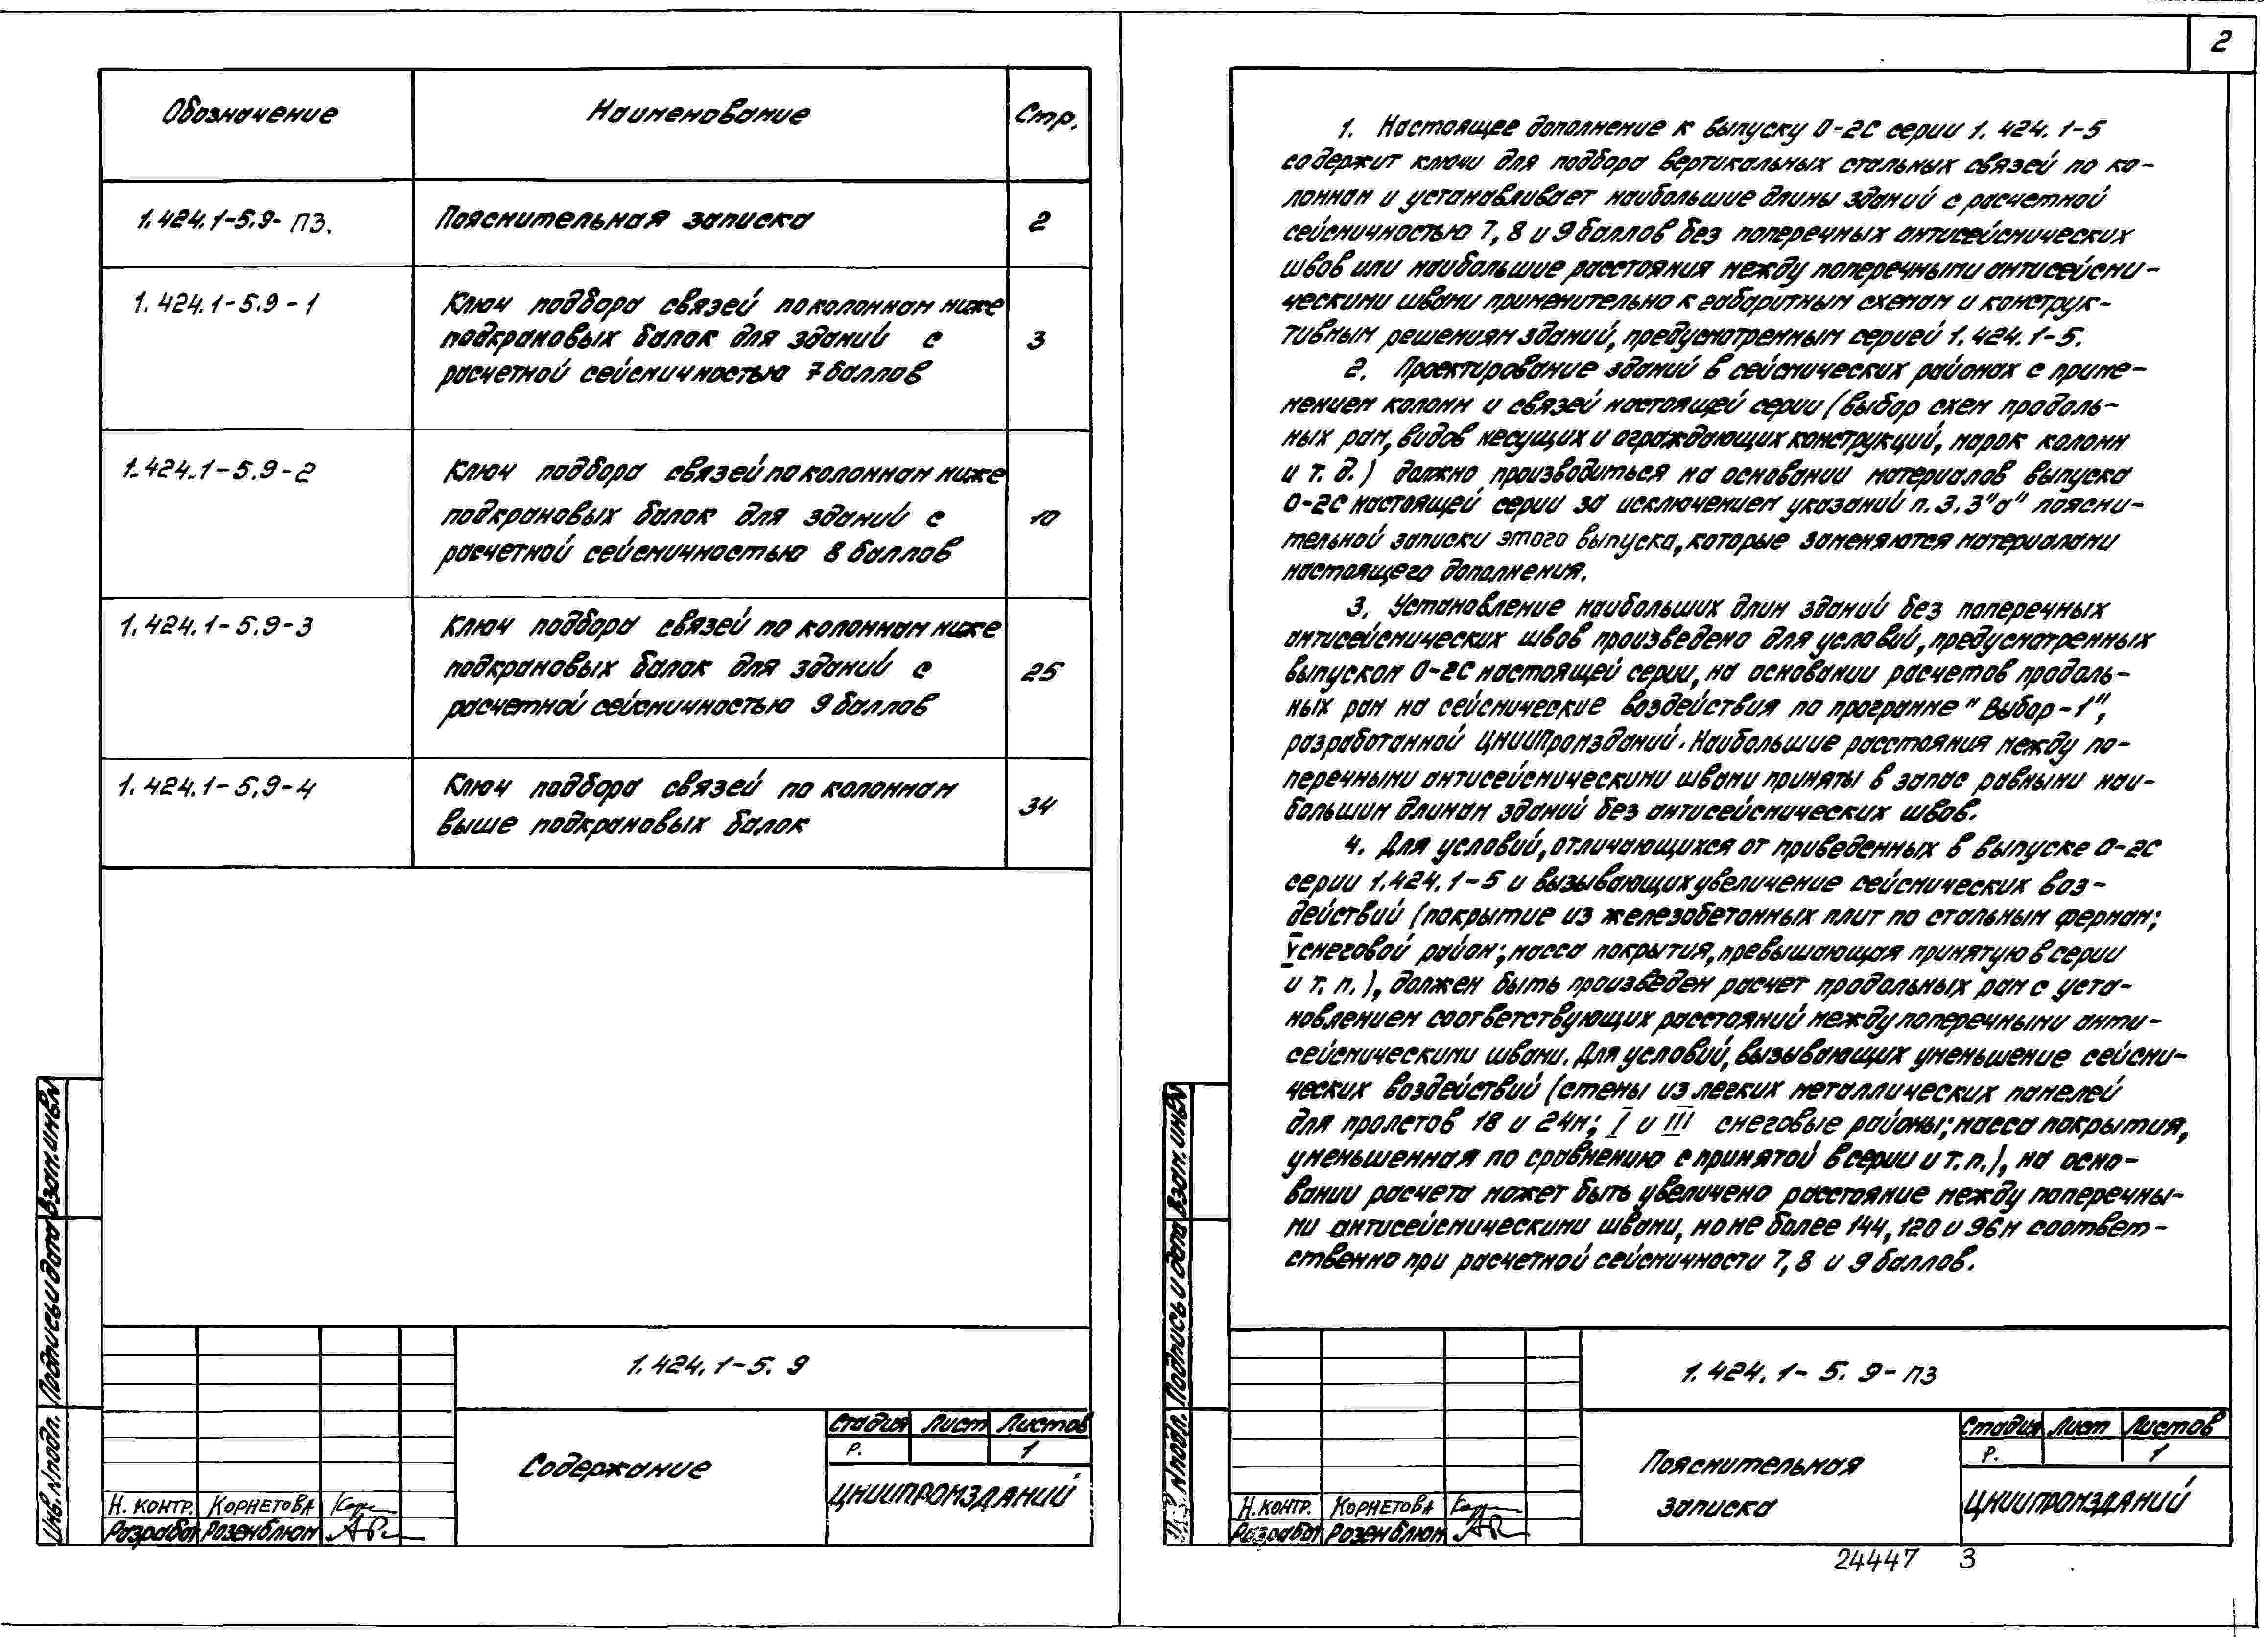 Обозначение
Наименование
Стр.
1.424.1-5.9-ПЗ.
Пояснительная записка
2
1.424.1-5.9-1
Ключ подбора связей по колоннам ниже
подкрановых балок для зданий с
расчетной сейсмичностью 7 баллов
3
1.424.1-5.9-2
Ключ подбора связей по колоннам ниже
подкрановых балок для зданий с
расчетной сейсмичностью 8 баллов
10
1.424.1-5.9-3
Ключ подбора связей по колоннам ниже
подкрановых балок для зданий с
расчетной сейсмичностью 9 баллов
25
1.424.1-5.9-4
Ключ подбора связей по колоннам
выше подкрановых балок
34
Взам. инв. №
Подпись и дата
Инв. № подл.
1.424.1-5.9
Содержание
Стадия Лист Листов
Р. 1
ЦНИИПРОМЗДАНИЙ
Н. КОНТР. КОРНЕТОВА
Разработ Розенблюм
2
1. Настоящее дополнение к выпуску 0-2С серии 1.424.1-5
содержит ключи для подбора вертикальных стальных связей по ко-
лоннам и устанавливает наибольшие длины зданий с расчетной
сейсмичностью 7, 8 и 9 баллов без поперечных антисейсмических
швов или наибольшие расстояния между поперечными антисейсми-
ческими швами применительно к габаритным схемам и конструк-
тивным решениям зданий, предусмотренным серией 1.424.1-5.
2. Проектирование зданий в сейсмических районах с приме-
нением колонн и связей настоящей серии (выбор схем продоль-
ных рам, видов несущих и ограждающих конструкций, марок колонн
и т. д.) должно производиться на основании материалов выпуска
0-2С настоящей серии за исключением указаний п. 3.3"а" поясни-
тельной записки этого выпуска, которые заменяются материалами
настоящего дополнения.
3. Установление наибольших длин зданий без поперечных
антисейсмических швов произведено для условий, предусмотренных
выпуском 0-2С настоящей серии, на основании расчетов продоль-
ных рам на сейсмические воздействия по программе "Выбор-1",
разработанной ЦНИИПромзданий. Наибольшие расстояния между по-
перечными антисейсмическими швами приняты в запас равными наи-
большим длинам зданий без антисейсмических швов.
4. Для условий, отличающихся от приведенных в выпуске 0-2С
серии 1.424.1-5 и вызывающих увеличение сейсмических воз-
действий (покрытие из железобетонных плит по стальным фермам;
V снеговой район; масса покрытия, превышающая принятую в серии
и т. п.), должен быть произведен расчет продольных рам с уста-
новлением соответствующих расстояний между поперечными анти-
сейсмическими швами. Для условий, вызывающих уменьшение сейсми-
ческих воздействий (стены из легких металлических панелей
для пролетов 18 и 24м; I и III снеговые районы; масса покрытия,
уменьшенная по сравнению с принятой в серии и т. п.), на осно-
вании расчета может быть увеличено расстояние между поперечны-
ми антисейсмическими швами, но не более 144, 120 и 96м соответ-
ственно при расчетной сейсмичности 7, 8 и 9 баллов.
Взам. инв. №
Подпись и дата
Инв. № подл.
1.424.1-5.9-ПЗ
Пояснительная
записка
Стадия Лист Листов
Р. 1
ЦНИИПРОМЗДАНИЙ
Н. КОНТР. КОРНЕТОВА
Разработ Розенблюм
24447 3